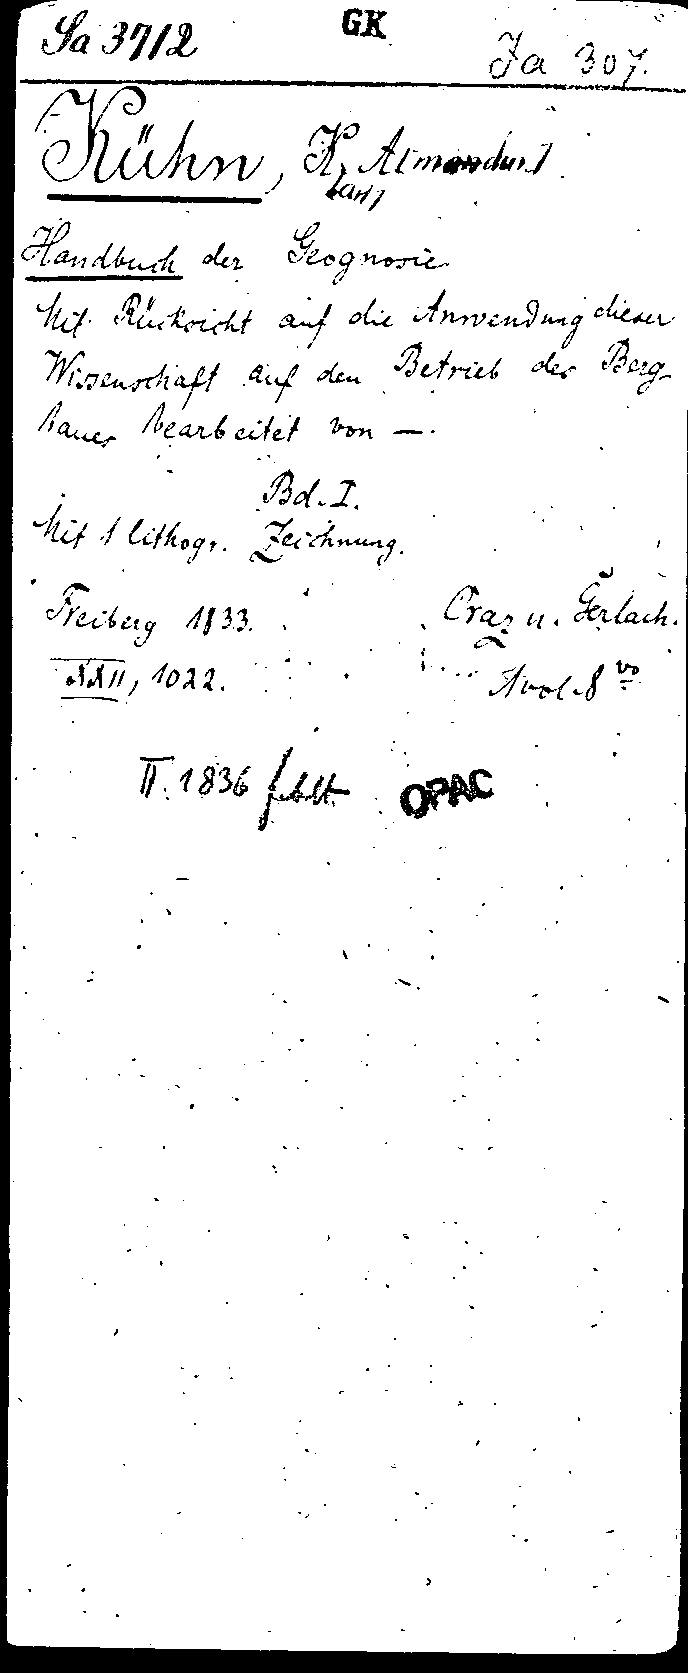 Sa 3712 GK Ja 307.
Kühn, K. Amandus
Karl
Handbuch der Geognosie
Mit Rücksicht auf die Anwendung dieser
Wissenschaft auf den Betrieb des Berg-
baues bearbeitet von —.
Bd. I.
Mit 1 lithogr. Zeichnung.
Freiberg 1833. Craz u. Gerlach.
XXII, 1022. 1 vol. 8vo
II. 1836 fehlt OPAC